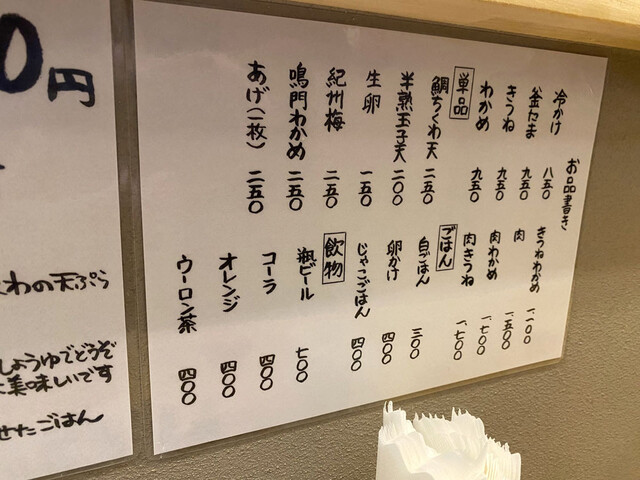 お品書き
冷かけ 八五〇
釜たま 九五〇
きつね 九五〇
わかめ 九五〇
きつねわかめ 一、一〇〇
肉 一、五〇〇
肉わかめ 一、七〇〇
肉きつね 一、七〇〇
単品
鯛ちくわ天 二五〇
半熟玉子天 二〇〇
生卵 一五〇
紀州梅 二五〇
鳴門わかめ 二五〇
あげ(一枚) 二五〇
ごはん
白ごはん 三〇〇
卵かけ 四〇〇
じゃこごはん 四〇〇
飲物
瓶ビール 七〇〇
コーラ 四〇〇
オレンジ 四〇〇
ウーロン茶 四〇〇
0円
わの天ぷら
しょうゆでどうぞ
美味しいです
せたごはん